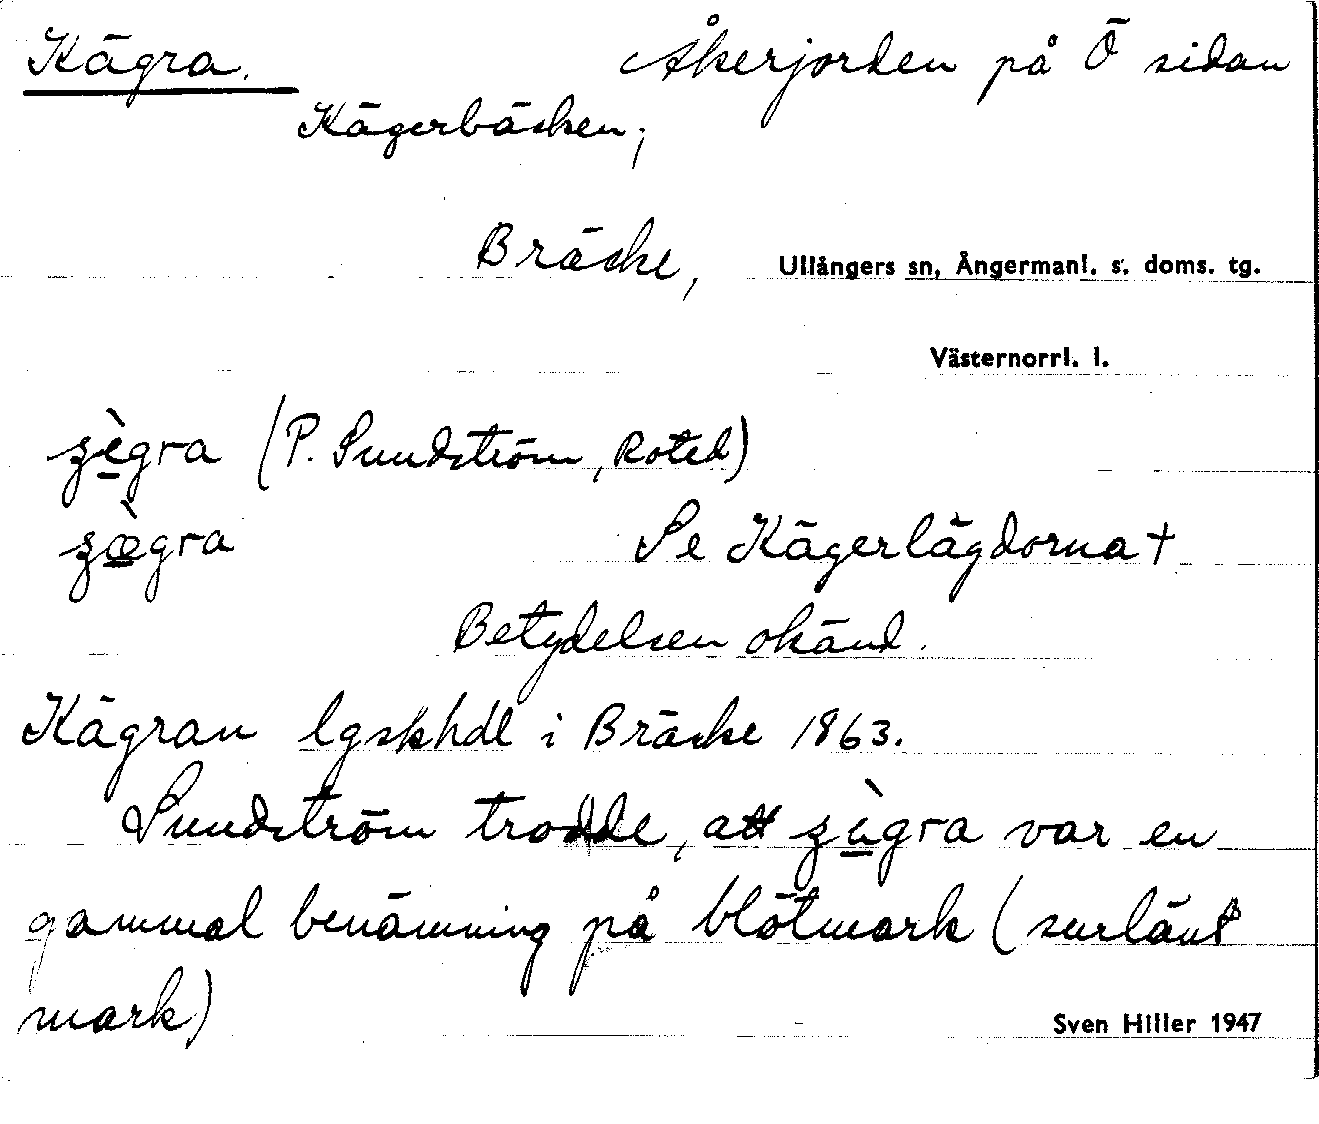 Kägra. Åkerjorden på Ö sidan
Kägerbäcken;
Bräcke, Ullångers sn, Ångermanl. s. doms. tg.
Västernorrl. l.
ʒègra (P. Sundström, Roted)
ʒæ̀gra Se Kägerlägdorna +
Betydelsen okänd.
Kägran lgskhdl i Bräcke 1863.
Sundström trodde, att ʒègra var en
gammal benämning på blötmark (surlänt
mark)
Sven Hiller 1947